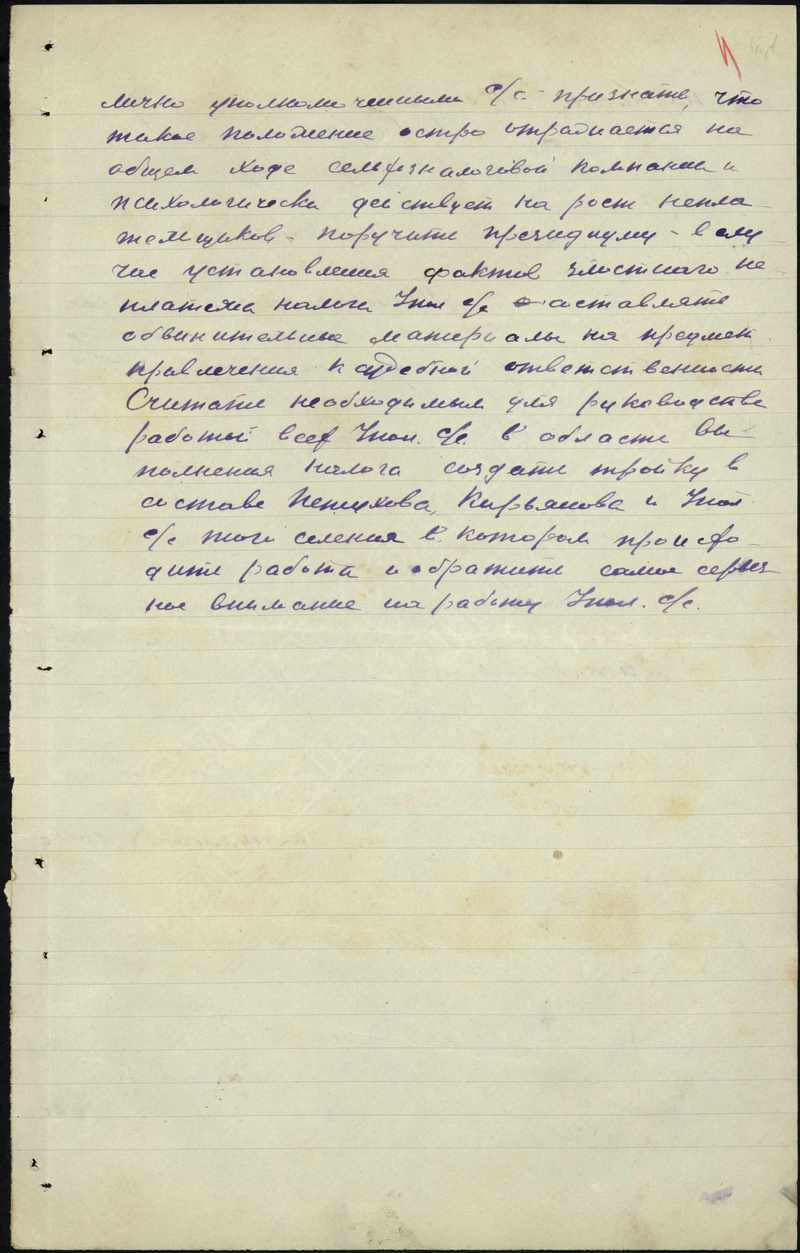 лично уполномоченными с/с. признать, что
такое положение остро отражается на
общем ходе сельхозналоговой компании и
психологически действует на рост непла-
тельщиков - поручить президиуму - в слу
чае установления фактов злостного не
платежа налога Упол с/с составлять
обвинительные материалы на предмет
привлечения к судебной ответственности
Считать необходимым для руководства
работой всех Упол. с/с. в области вы-
полнения налога создать тройку в
составе Петухова, Кирьянова и Упол
с/с того селения в котором происхо-
дить работа и обратить самое серьез
ное внимание на работу Упол. с/с.